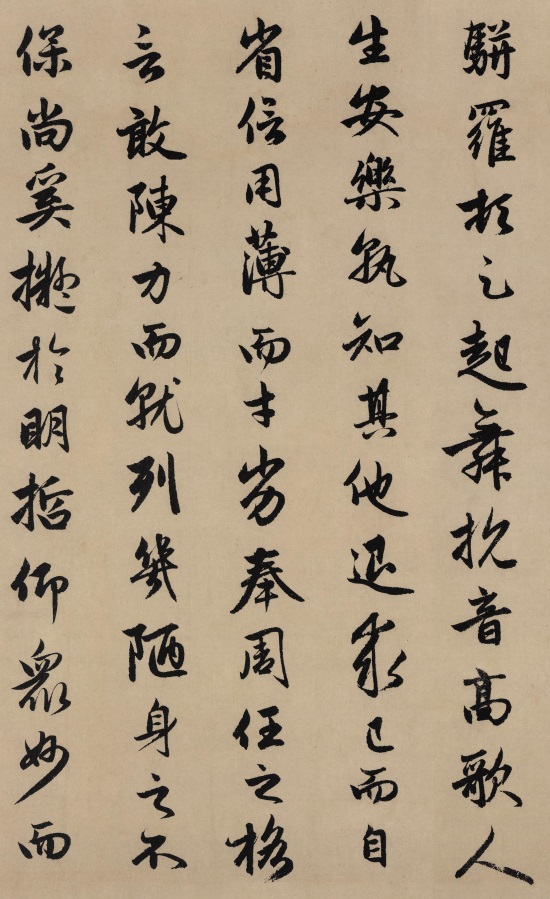 駢羅頓足起舞抗音高歌人
生安樂孰知其他退求己而自
省信用薄而才劣奉周任之格
言敢陳力而就列幾陋身之不
保尚奚擬於明哲仰衆妙而